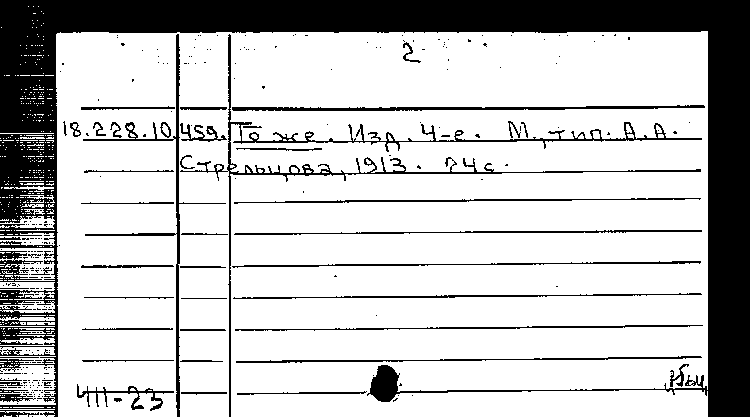 2
18.228.10.459. То же. Изд. 4-е. М., тип. А.А.
Стрельцова, 1913. 24 с.
411-23